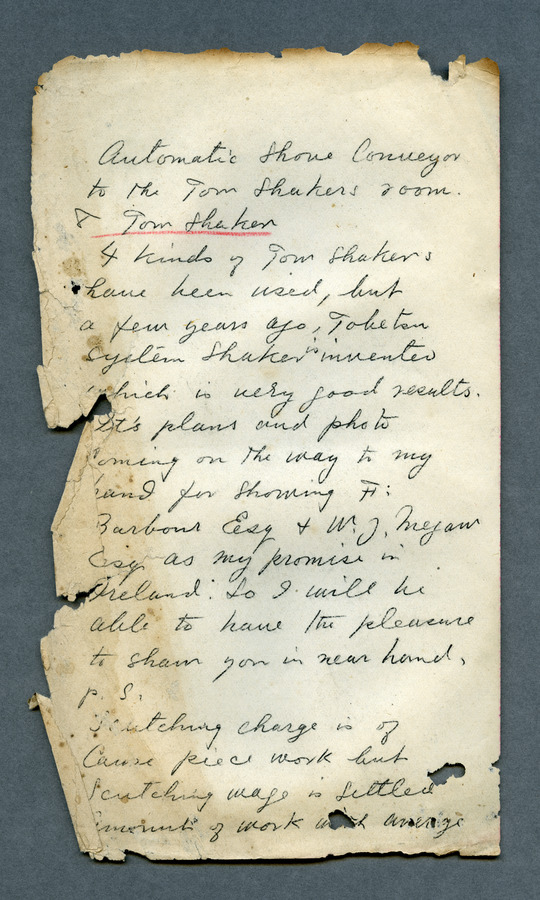 Automatic Shove Conveyor
to the Tow Shakers room.
& Tow Shaker
4 kinds of Tow Shakers
have been used, but
a few years ago, Tobetsu
system Shaker is invented
which is very good results.
It's plans and photo
coming on the way to my
hand for showing F:
Barbour Esq & W. J. Megaw
Esq. as my promise in
Ireland. So I will be
able to have the pleasure
to shaw you in near hand.
p. S.
Scutching charge is of
Cause piece work but
Scutching wage is Settled
amount of work with average